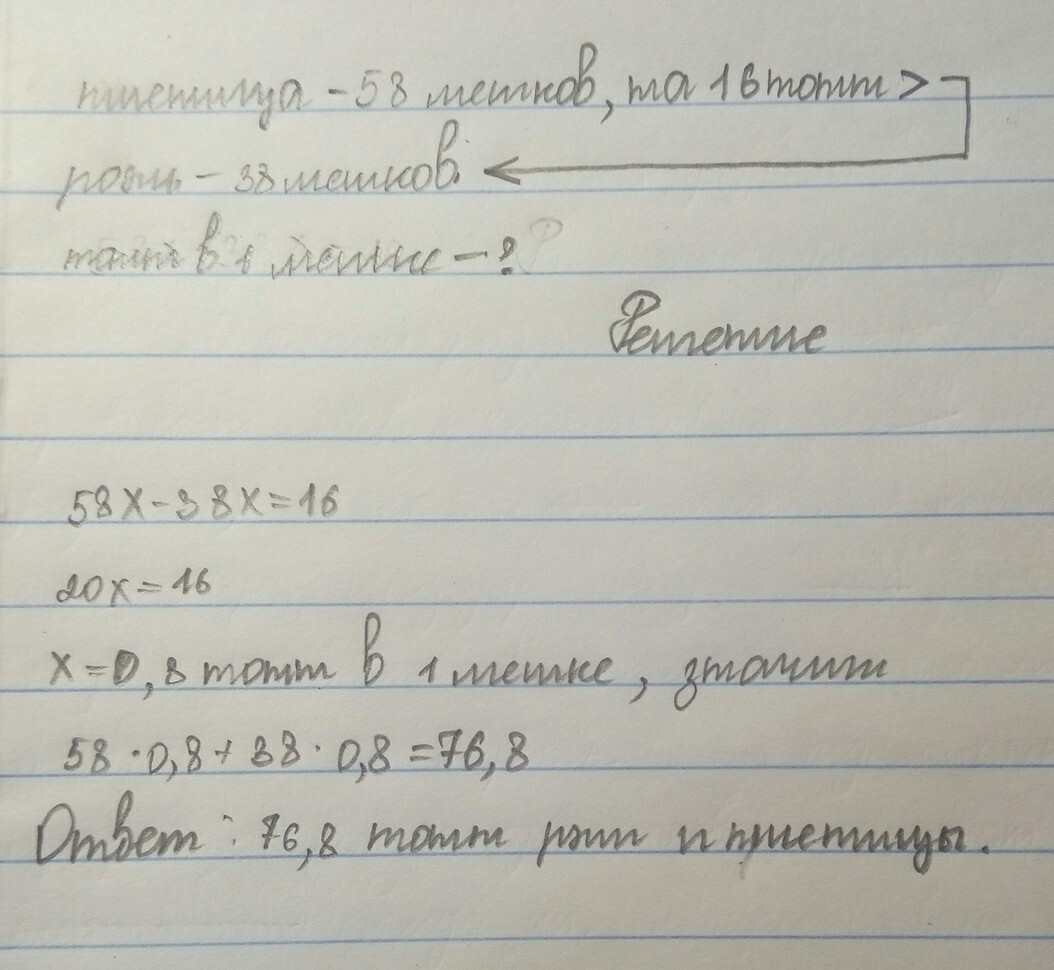 пшеница - 58 мешков, на 16 тонн >
рожь - 38 мешков.
тонн в 1 мешке - ?
Решение
58x - 38x = 16
20x = 16
x = 0,8 тонн в 1 мешке, значит
58 · 0,8 + 38 · 0,8 = 76,8
Ответ: 76,8 тонн ржи и пшеницы.